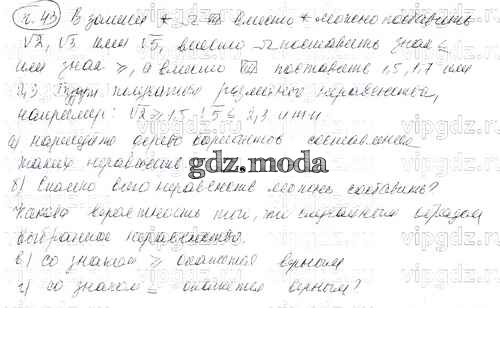 п. 43) В записи * Ω вместо * можно поставить
√2, √3 или √5, вместо Ω поставить знак ≤
или знак ≥, а вместо поставить 1,5, 1,7 или
2,3 разных неравенств,
например: √2 ≥ 1,5 √5 ≤ 2,3 и т.п.
а) нарисуйте дерево вариантов составления
таких неравенств.
gdz.moda
б) Сколько всего неравенств можно составить?
Какова вероятность того, что случайным образом
выбранное неравенство:
в) со знаком ≥ окажется верным
г) со знаком ≤ окажется верным?